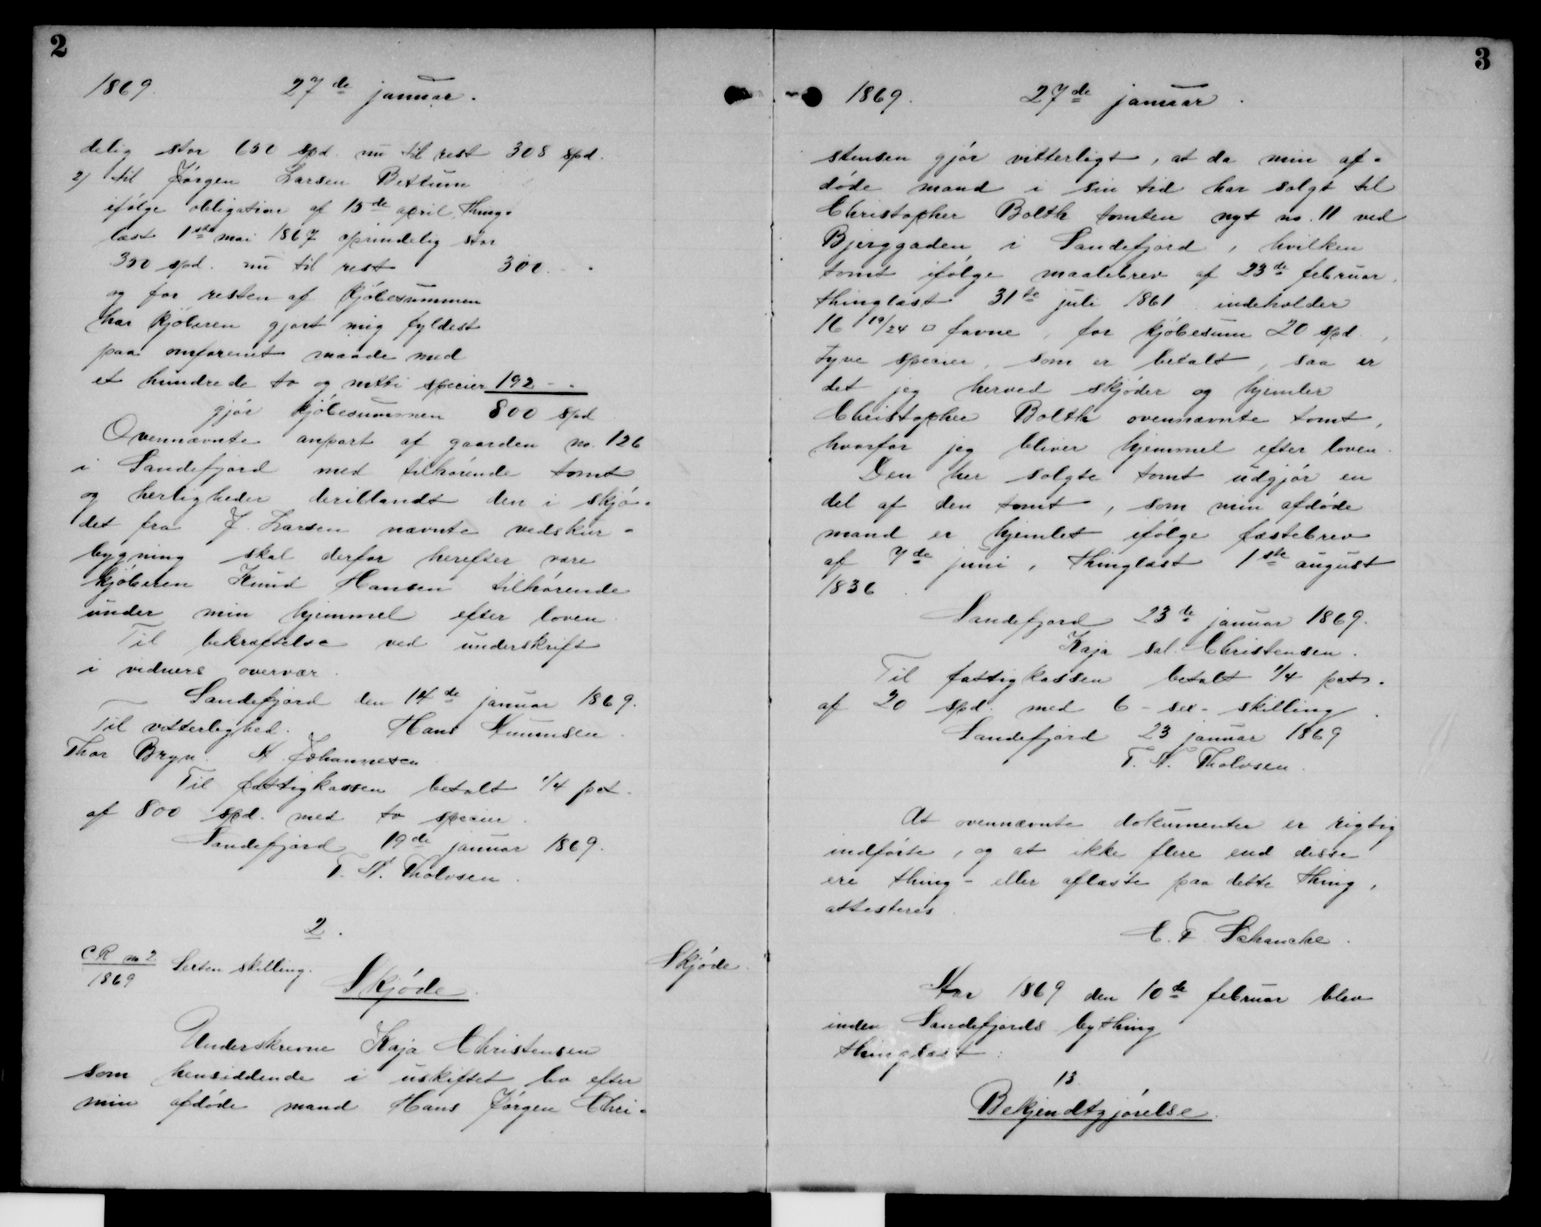 2
1869. 27de januar.
delig stor 650 spd. nu til rest 308 spd.
2) til Jörgen Larsen Bettum
ifölge obligation af 15de april thing-
læst 1ste mai 1867 oprindelig stor
350 spd. nu til rest 300 - -
og for resten af kjöbesummen
har kjöberen gjort mig fyldest
paa omforenet maade med
et hundrede to og nitti specier 192 - -
gjör kjöbesummen 800 spd
Ovennævnte anpart af gaarden no. 126
i Sandefjord med tilhörende tomt
og herligheder deriblandt den i skjö-
det fra J. Larsen nævnte vedskur-
bygning skal derfor herefter være
kjöberen Knud Hansen tilhörende
under min hjemmel efter loven
Til bekræftelse ved underskrift
i vidners overvær.
Sandefjord den 14de januar 1869.
Til vitterlighed. Hans
Thor Bryn. Johannesen
Til fattigkassen betalt 1/4 pct.
af 800 spd. med to specier.
Sandefjord 19de januar 1869.
T. N. Tholvsen.
2.
C.R. no 2. Sexten skilling.
1869
Skjöde.
Skjöde.
Underskrevne Kaja Christensen
som hensiddende i uskiftet bo efter
min afdöde mand Hans Jörgen Chri-
3
1869. 27de januar.
stensen gjör vitterligt, at da min af-
döde mand i sin tid har solgt til
Christopher Bolth tomten nyt no. 11 ved
Bjerggaden i Sandefjord, hvilken
tomt ifölge maalebrev af 23de februar,
thinglæst 31te juli 1861 indeholder
16 19/24 □ favne, for kjöbesum 20 spd.,
tyve specier, som er betalt, saa er
det jeg herved skjöder og hjemler
Christopher Bolth ovennævnte tomt,
hvorfor jeg bliver hjemmel efter loven.
Den her solgte tomt udgjör en
del af den tomt, som min afdöde
mand er hjemlet ifölge fæstebrev
af 7de juni, thinglæst 1ste august
1836.
Sandefjord 23de januar 1869.
Kaja sal. Christensen.
Til fattigkassen betalt 1/4 pct.
af 20 spd. med 6 - sex - skilling.
Sandefjord 23 januar 1869
T. N. Tholvsen.
At ovennævnte dokumenter er rigtig
indförte, og at ikke flere end disse
ere thing- eller aflæste paa dette thing,
attesteres
C. F. Schancke.
Aar 1869 den 10de februar blev
inden Sandefjords bything
thinglæst:
13
Bekjendtgjörelse.